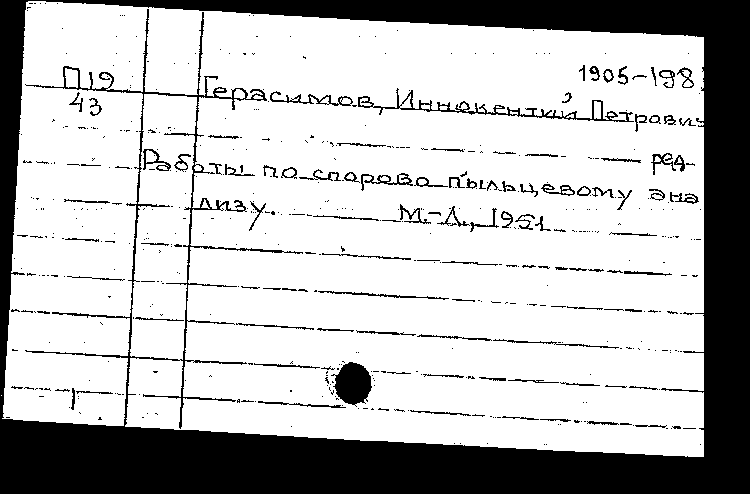 1905-198
П19 Герасимов, Иннокентий Петрович
43
ред.
Работы по спорово пыльцевому ана
лизу. М.-Л., 1951